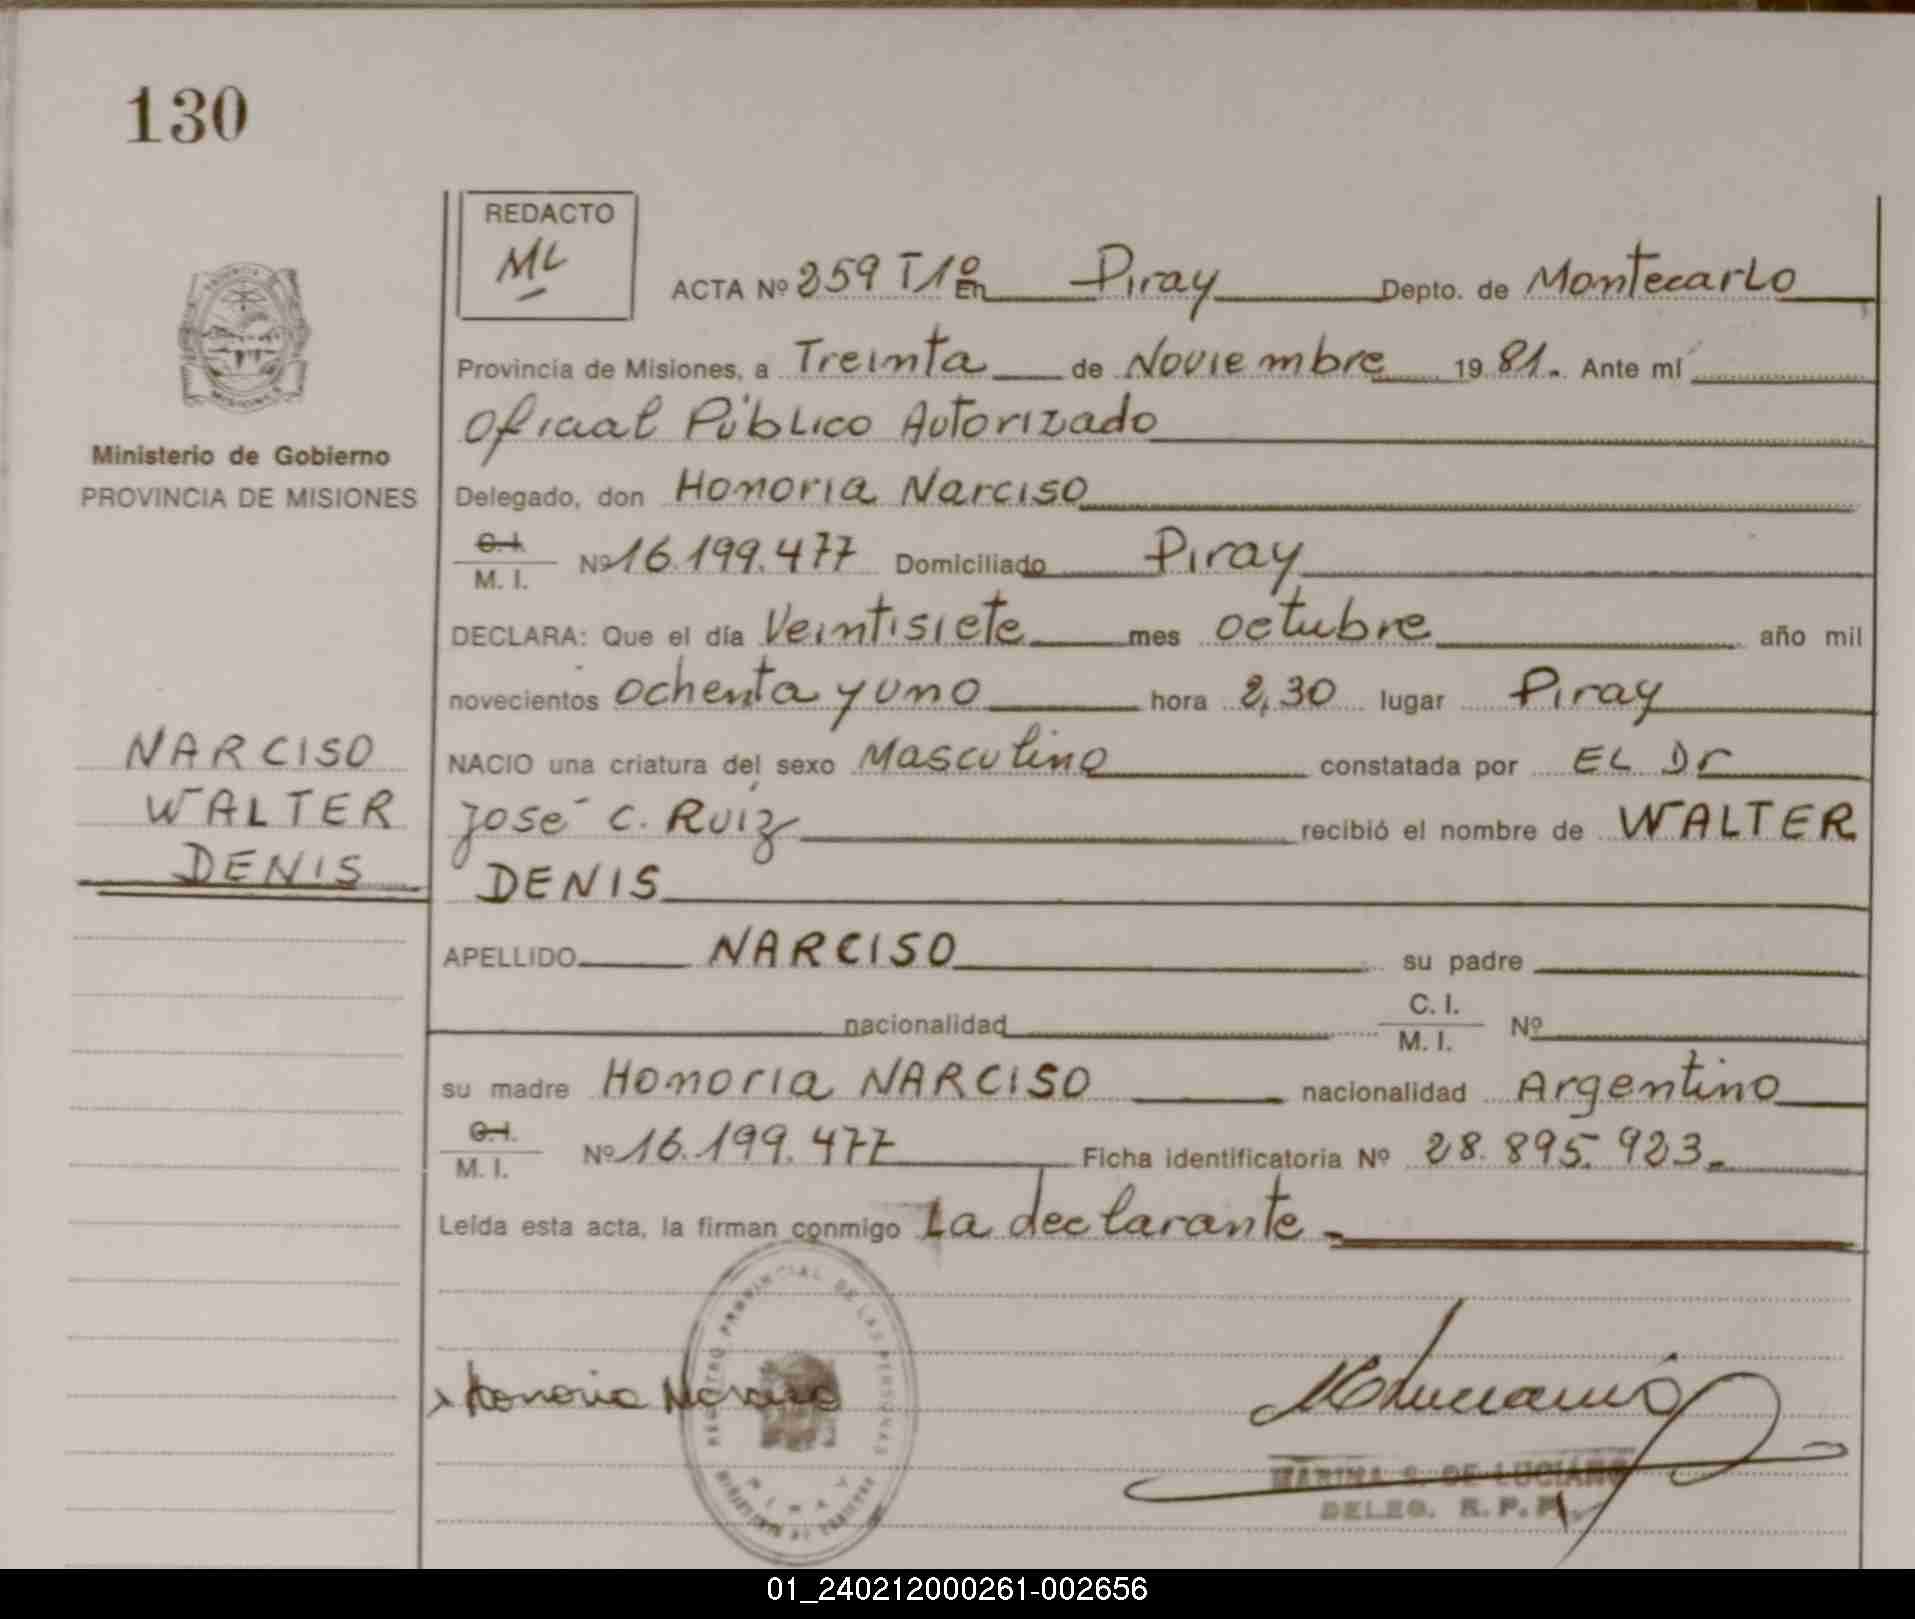 130
REDACTO
ML
ACTA Nº 259 T1º En Piray Depto. de Montecarlo
Provincia de Misiones, a Treinta de Noviembre 1981. Ante mí
Oficial Público Autorizado
Ministerio de Gobierno
PROVINCIA DE MISIONES
Delegado, don Honoria Narciso
C.I. M.I. Nº 16.199.477 Domiciliado Piray
DECLARA: Que el día Veintisiete mes octubre año mil
novecientos ochenta y uno hora 2,30 lugar Piray
NARCISO
WALTER
DENIS
NACIO una criatura del sexo Masculino constatada por EL Dr
José C. Ruiz recibió el nombre de WALTER
DENIS
APELLIDO NARCISO su padre
nacionalidad C. I. M. I. Nº
su madre Honoria NARCISO nacionalidad Argentino
C.I. M. I. Nº 16.199.477 Ficha identificatoria Nº 28.895.923.
Leída esta acta, la firman conmigo La declarante
REGISTRO PROVINCIAL DE LAS PERSONAS
PIRAY
x Honoria Narciso
MARINA S. DE LUCIANO
DELEG. R.P.P.
01_240212000261-002656